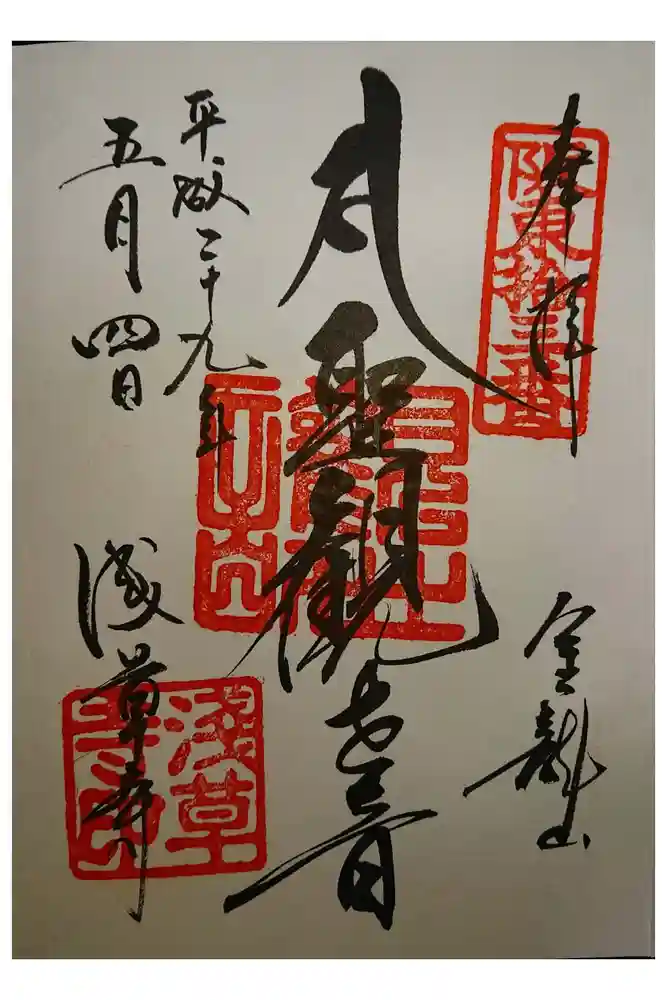 奉拝
坂東拾三番
金龍山
聖観世音
平成二十九年
五月四日
浅草寺
浅草寺印